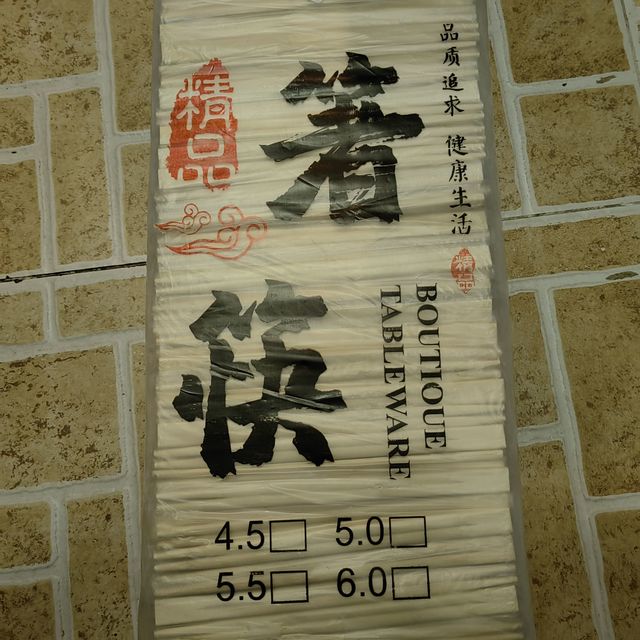 精品
箸
筷
品质追求 健康生活
精品
BOUTIQUE
TABLEWARE
4.5□ 5.0□
5.5□ 6.0□